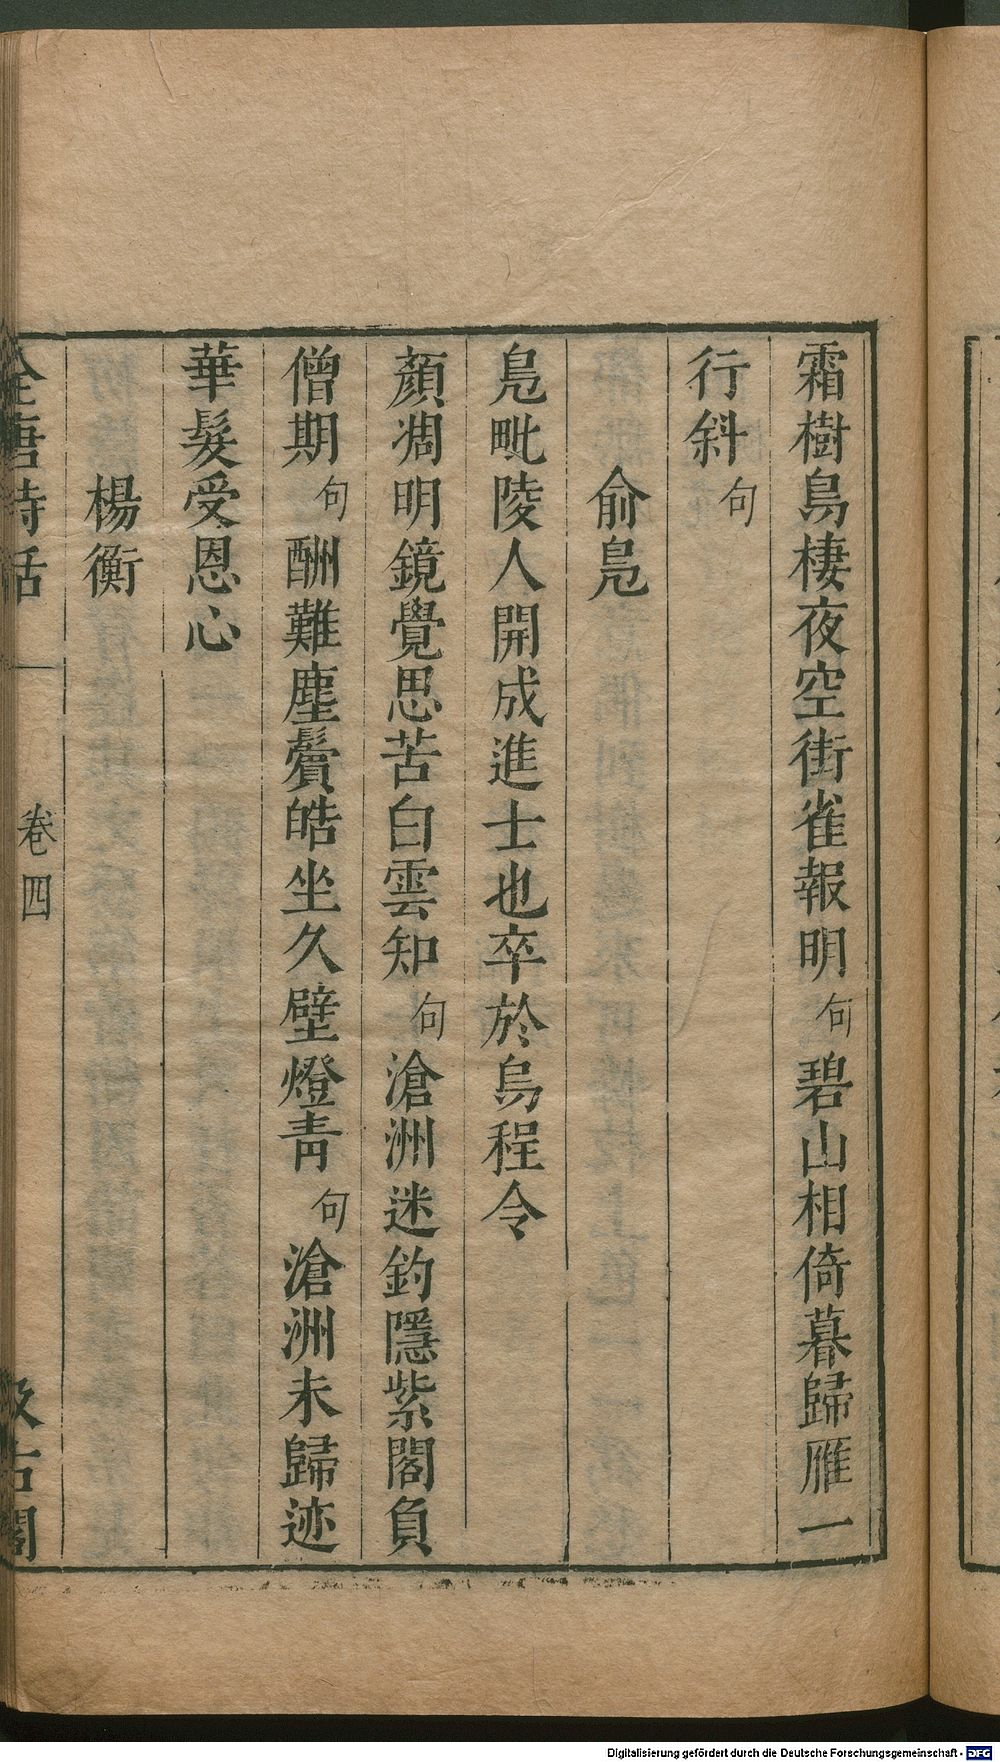 霜樹鳥棲夜空街雀報明句碧山相倚暮歸雁一
行斜句
俞鳧
鳧毗陵人開成進士也卒於烏程令
顏凋明鏡覺思苦白雲知句滄洲迷釣隱紫閣負
僧期句酬難塵鬢皓坐久壁燈青句滄洲未歸迹
華髮受恩心
楊衡
全唐詩話 卷四 汲古閣
Digitalisierung gefördert durch die Deutsche Forschungsgemeinschaft - DFG